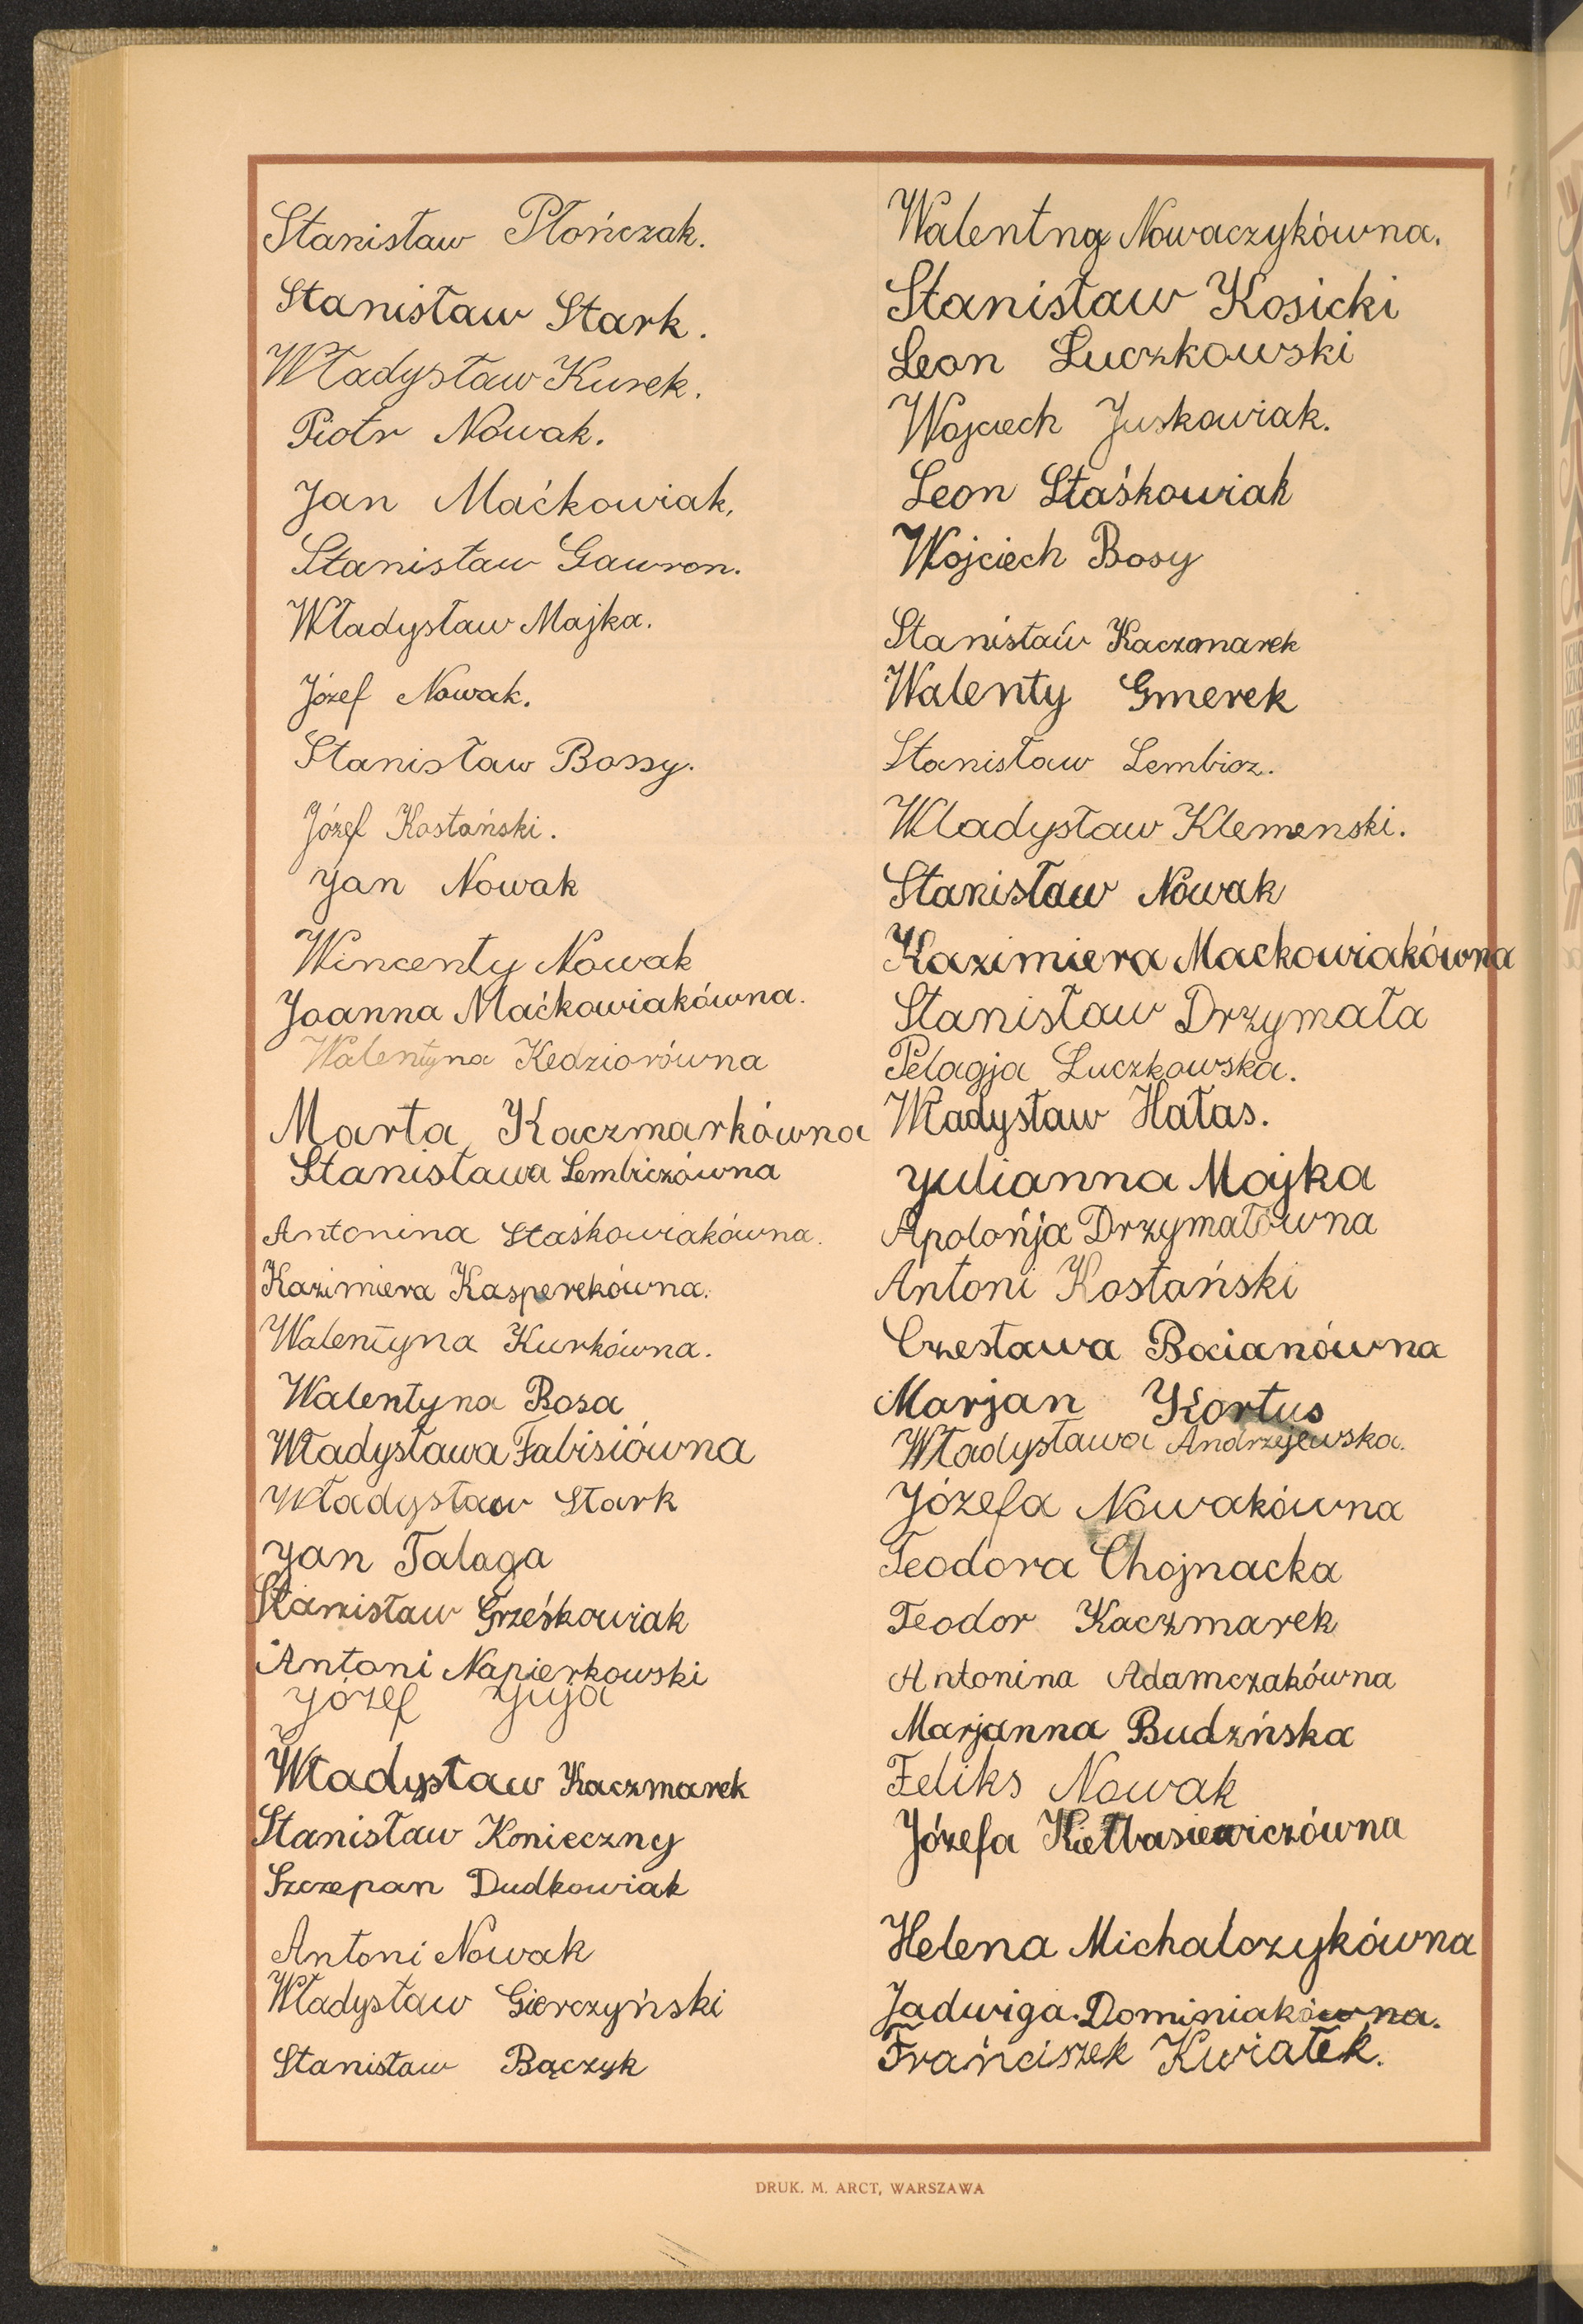 Stanisław Płończak.
Stanisław Stark.
Władysław Kurek.
Piotr Nowak.
Jan Maćkowiak.
Stanisław Gawron.
Władysław Majka.
Józef Nowak.
Stanisław Bossy.
Józef Kostański.
Jan Nowak
Wincenty Nowak
Joanna Maćkowiakówna.
Walentyna Kedziorówna
Marta Kaczmarkówna
Stanisława Lembiczówna
Antonina Staśkowiakówna.
Kazimiera Kasperekówna.
Walentyna Kurkówna.
Walentyna Bosa
Władysława Fabisiówna
Władysław Stark
Jan Talaga
Stanisław Grześkowiak
Antoni Napierkowski
Józef Juja
Władysław Kaczmarek
Stanisław Konieczny
Szczepan Dudkowiak
Antoni Nowak
Władysław Gierczyński
Stanisław Bączyk
Walentna Nowaczykówna.
Stanisław Kosicki
Leon Łuczkowski
Wojciech Juskowiak.
Leon Staśkowiak
Wojciech Bosy
Stanisław Kaczmarek
Walenty Gmerek
Stanisław Lembicz.
Wladysław Klemenski.
Stanisław Nowak
Kazimiera Mackowiakówna
Stanisław Drzymała
Pelagja Łuczkowska.
Władysław Hałas.
Julianna Majka
Apolońja Drzymałówna
Antoni Kostański
Czesława Bocianówna
Marjan Kortus
Władysława Andrzejewska.
Józefa Nowakówna
Teodora Chojnacka
Teodor Kaczmarek
Antonina Adamczakówna
Marjanna Budzńska
Feliks Nowak
Józefa Kiełbasiewiczówna
Helena Michalczykówna
Jadwiga Dominiakówna.
Frańciszek Kwiatek.
DRUK. M. ARCT, WARSZAWA